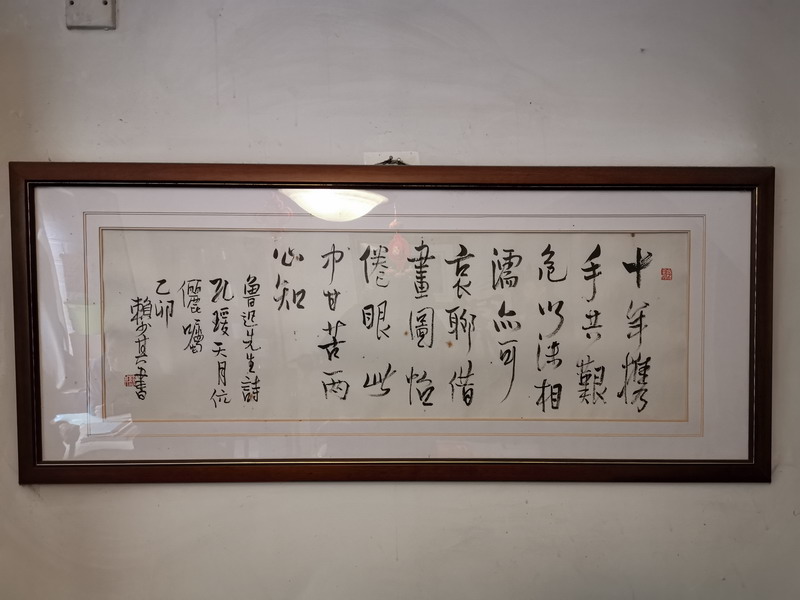 十年携
手共艱
危以沫相
濡亦可
哀聊借
畫圖怡
倦眼此
中甘苦兩
心知
魯迅先生詩
孔瑗天月伉
儷囑
乙卯
賴少其書